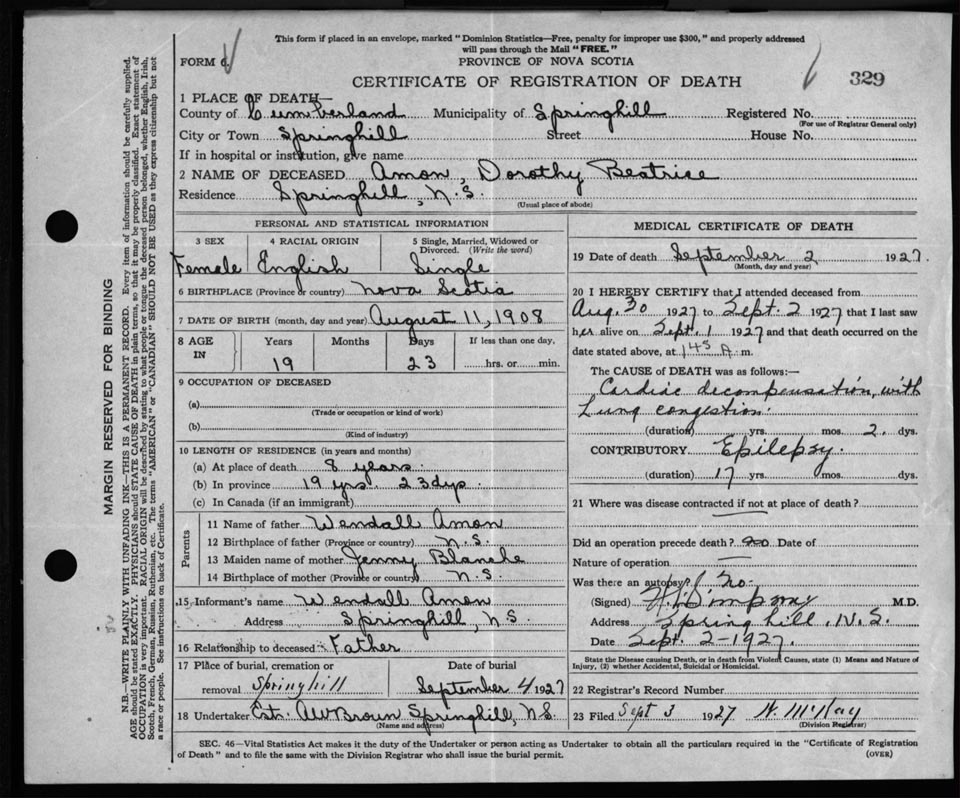 This form if placed in an envelope, marked "Dominion Statistics—Free, penalty for improper use $300," and properly addressed
will pass through the Mail "FREE."
FORM
PROVINCE OF NOVA SCOTIA
CERTIFICATE OF REGISTRATION OF DEATH
329
1 PLACE OF DEATH—
County of Cumberland Municipality of Springhill Registered No.
(For use of Registrar General only)
City or Town Springhill Street House No.
If in hospital or institution, give name
2 NAME OF DECEASED Amon, Dorothy Beatrice
Residence Springhill, N.S.
(Usual place of abode)
PERSONAL AND STATISTICAL INFORMATION
3 SEX 4 RACIAL ORIGIN 5 Single, Married, Widowed or
Divorced. (Write the word)
Female English Single
6 BIRTHPLACE (Province or country) Nova Scotia
7 DATE OF BIRTH (month, day and year) August 11, 1908
8 AGE IN Years Months Days If less than one day,
19 23 hrs. or min.
9 OCCUPATION OF DECEASED
(a)
(Trade or occupation or kind of work)
(b)
(Kind of industry)
10 LENGTH OF RESIDENCE (in years and months)
(a) At place of death 8 years.
(b) In province 19 yrs. 23 dys.
(c) In Canada (if an immigrant)
Parents
11 Name of father Wendall Amon
12 Birthplace of father (Province or country) N.S.
13 Maiden name of mother Jenny Blanche
14 Birthplace of mother (Province or country) N.S.
15 Informant's name Wendall Amon
Address Springhill, N.S.
16 Relationship to deceased Father
17 Place of burial, cremation or Date of burial
removal Springhill September 4 1927
18 Undertaker A W Brown Springhill, N.S.
(Name and address)
MEDICAL CERTIFICATE OF DEATH
19 Date of death September 2 1927.
(Month, day and year)
20 I HEREBY CERTIFY that I attended deceased from
Aug. 30 1927 to Sept. 2 1927 that I last saw
her alive on Sept. 1 1927 and that death occurred on the
date stated above, at 1 45 A. m.
The CAUSE of DEATH was as follows:—
Cardiac decompensation, with
Lung congestion.
(duration) yrs. mos. 2. dys.
CONTRIBUTORY Epilepsy.
(duration) 17 yrs. mos. dys.
21 Where was disease contracted if not at place of death?
Did an operation precede death? no Date of
Nature of operation
Was there an autopsy? No.
(Signed) Simpson M.D.
Address Springhill, N.S.
Date Sept. 2-1927.
State the Disease causing Death, or in death from Violent Causes, state (1) Means and Nature of
Injury, (2) whether Accidental, Suicidal or Homicidal.
22 Registrar's Record Number
23 Filed Sept 3 1927 N. McKay
(Division Registrar)
SEC. 46—Vital Statistics Act makes it the duty of the Undertaker or person acting as Undertaker to obtain all the particulars required in the "Certificate of Registration
of Death" and to file the same with the Division Registrar who shall issue the burial permit.
(OVER)
MARGIN RESERVED FOR BINDING
N.B.—WRITE PLAINLY WITH UNFADING INK—THIS IS A PERMANENT RECORD. Every item of information should be carefully supplied.
AGE should be stated EXACTLY. PHYSICIANS should STATE CAUSE OF DEATH in plain terms, so that it may be properly classified. Exact statement of
OCCUPATION is very important. RACIAL ORIGIN will be described by stating to what people or tongue the deceased person belonged, whether English, Irish,
Scotch, French, German, Russian, Ruthenian, etc. The terms "AMERICAN" or "CANADIAN" SHOULD NOT BE USED as they express citizenship but not
a race or people. See instructions on back of Certificate.